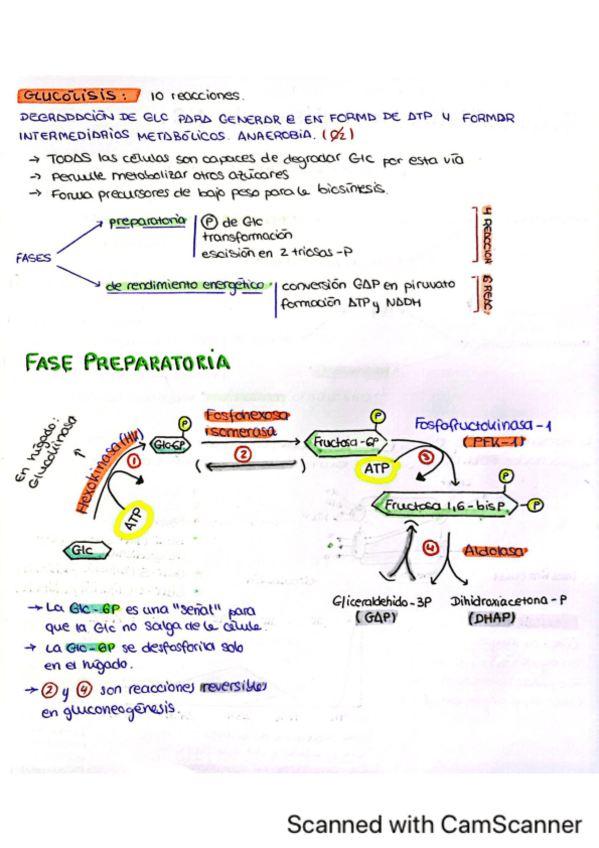 GLUCÓLISIS: 10 reacciones.
DEGRADACIÓN DE GLC PARA GENERAR E EN FORMA DE ATP Y FORMAR
INTERMEDIARIOS METABÓLICOS. ANAEROBIA. (O2)
→ TODAS las células son capaces de degradar Glc por esta vía
→ Permite metabolizar otros azúcares
→ Forma precursores de bajo peso para la biosínesis.
FASES
preparatoria
P de Glc
transformación
escisión en 2 triosas-P
4 REACCION
de rendimiento energético
conversión GAP en piruvato
formación ATP y NADH
6 REAC.
FASE PREPARATORIA
En hígado:
Glucokinasa
Hexokinasa (HK)
1
ATP
Glc
Glc-6P
P
Fosfohexosa
isomerasa
2
Fructosa-6P
P
ATP
3
Fosfofructokinasa-1
(PFK-1)
Fructosa 1,6-bisP
P
P
4
Aldolasa
Gliceraldehido-3P
(GAP)
Dihidroxiacetona-P
(DHAP)
→ La Glc-6P es una "señal" para
que la Glc no salga de la célula.
→ La Glc-6P se desfosforila solo
en el hígado.
→ 2 y 4 son reacciones reversibles
en gluconeogénesis.
Scanned with CamScanner